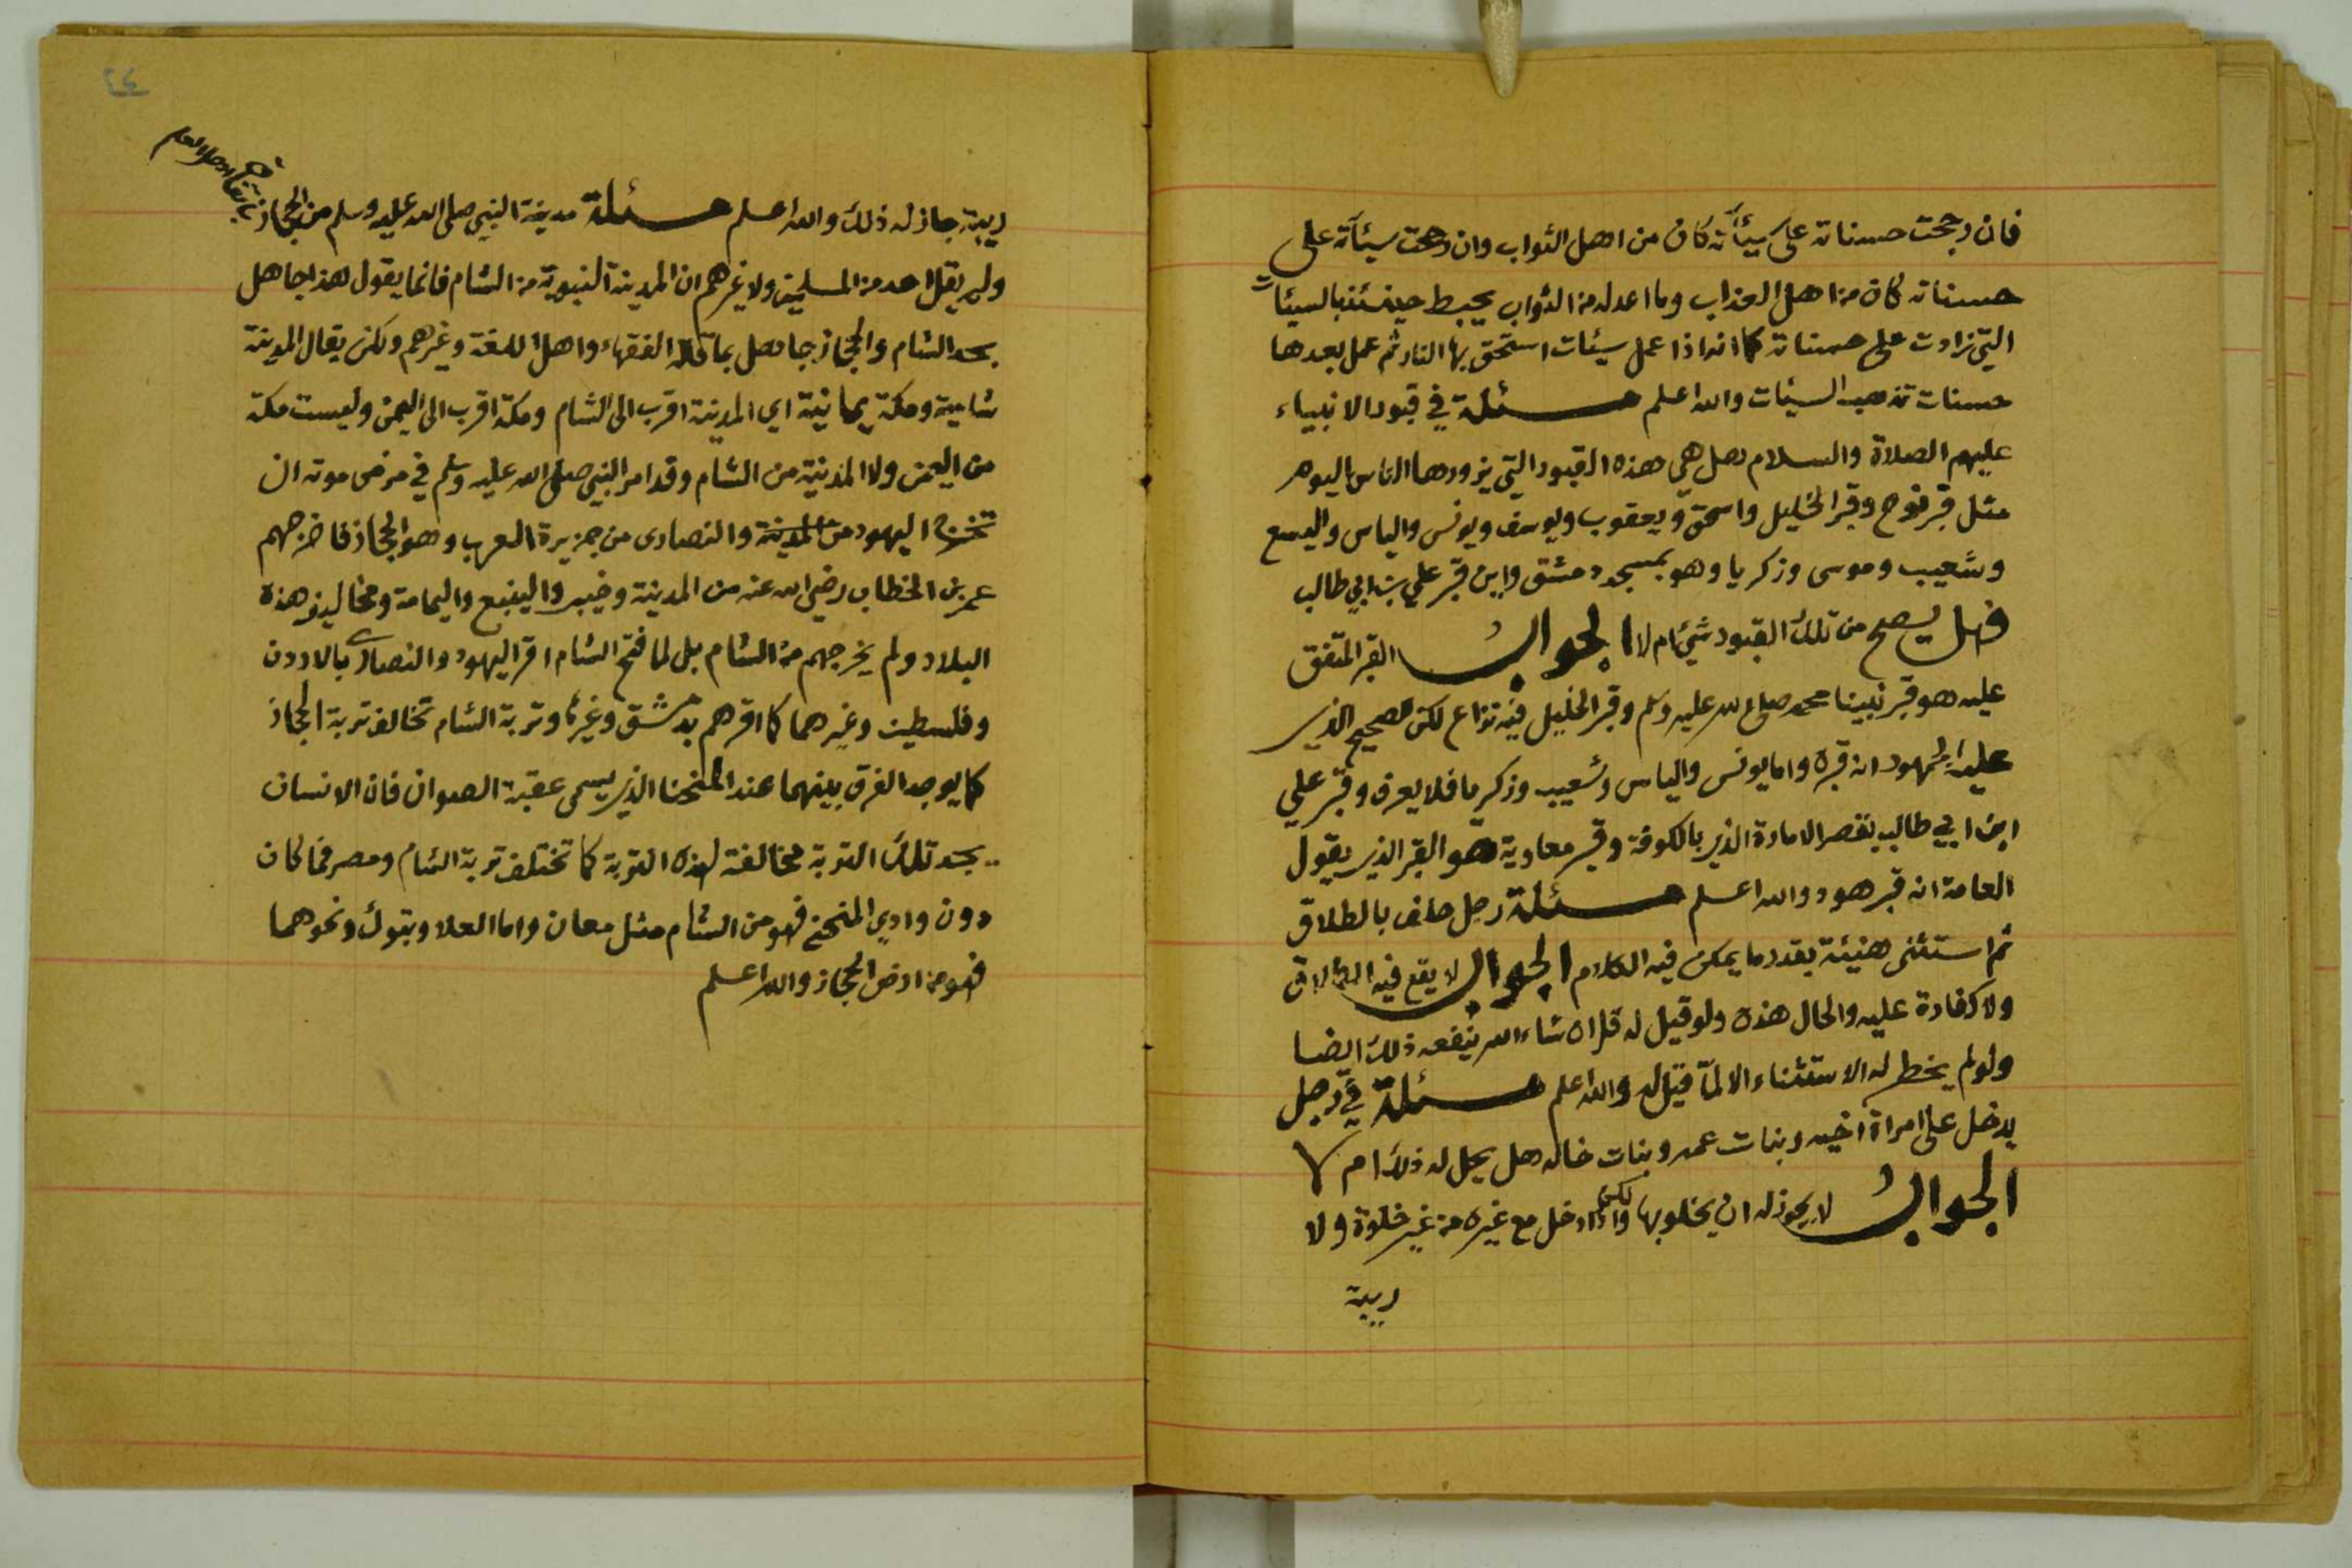 فان رجحت حسناته على سيئآته كان من اهل الثواب وان رجحت سيئآته على
حسناته كان من اهل العذاب وما اعد له من الثواب يحبط حينئذ بالسيئات
التي زادت على حسناته كما انه اذا عمل سيئات استحق بها النار ثم عمل بعدها
حسنات تذهب السيئات والله اعلم مسئلة في قبور الانبياء
عليهم الصلاة والسلام هل هي هذه القبور التي يزورها الناس اليوم
مثل قبر نوح وقبر الخليل واسحق ويعقوب ويوسف ويونس والياس واليسع
وشعيب وموسى وزكريا وهو بمسجد دمشق واين قبر علي بن ابي طالب
فهل يصح من تلك القبور شيئ ام لا الجواب القبر المتفق
عليه هو قبر نبينا محمد صلى الله عليه وسلم وقبر الخليل فيه نزاع لكن الصحيح الذي
عليه الجمهور انه قبره واما يونس والياس وشعيب وزكريا فلا يعرف وقبر علي
ابن ابي طالب بقصر الامارة الذي بالكوفة وقبر معاوية هو القبر الذي يقول
العامة انه قبر هود والله اعلم مسئلة رجل حلف بالطلاق
ثم استثنى هنيئة بقدر ما يمكن فيه الكلام الجواب لا يقع فيه الطلاق
ولا كفارة عليه والحال هذه ولو قيل له قل ان شاء الله ينفعه ذلك ايضا
ولو لم يخطر له الاستثناء الا لمّا قيل له والله اعلم مسئلة في رجل
يدخل على امراة اخيه وبنات عمه وبنات خاله هل يحل له ذلك ام لا
الجواب لا يجوز له ان يخلو بها ولكن اذا دخل مع غيره من غير خلوة ولا
ريبة
٢٤
ريبة جاز له ذلك والله اعلم مسئلة مدينة النبي صلى الله عليه وسلم من الحجاز باتفاق اهل العلم
ولم يقل احد من المسلمين ولا غيرهم ان المدينة النبوية من الشام فانما يقول هذا جاهل
بحد الشام والحجاز جاهل بما قاله الفقهاء واهل اللغة وغيرهم ولكن يقال المدينة
شامية ومكة يمانية اي المدينة اقرب الى الشام ومكة اقرب الى اليمن وليست مكة
من اليمن ولا المدينة من الشام وقد امر النبي صلى الله عليه وسلم في مرض موته ان
تخرج اليهود من المدينة والنصارى من جزيرة العرب وهو الحجاز فاخرجهم
عمر بن الخطاب رضي الله عنه من المدينة وخيبر والينبع واليمامة ومخاليف هذه
البلاد ولم يخرجهم من الشام بل لما فتح الشام اقر اليهود والنصارى بالاردن
وفلسطين وغيرهما كما اقرهم بدمشق وغيرها وتربة الشام تخالف تربة الحجاز
كما يوجد الفرق بينهما عند المنحنا الذي يسمى عقبة الصوان فان الانسان
يجد تلك التربة مخالفة لهذه التربة كما تختلف تربة الشام ومصر فما كان
دون وادي المنحنى فهو من الشام مثل معان واما العلا وتبوك ونحوهما
فهو من ارض الحجاز والله اعلم